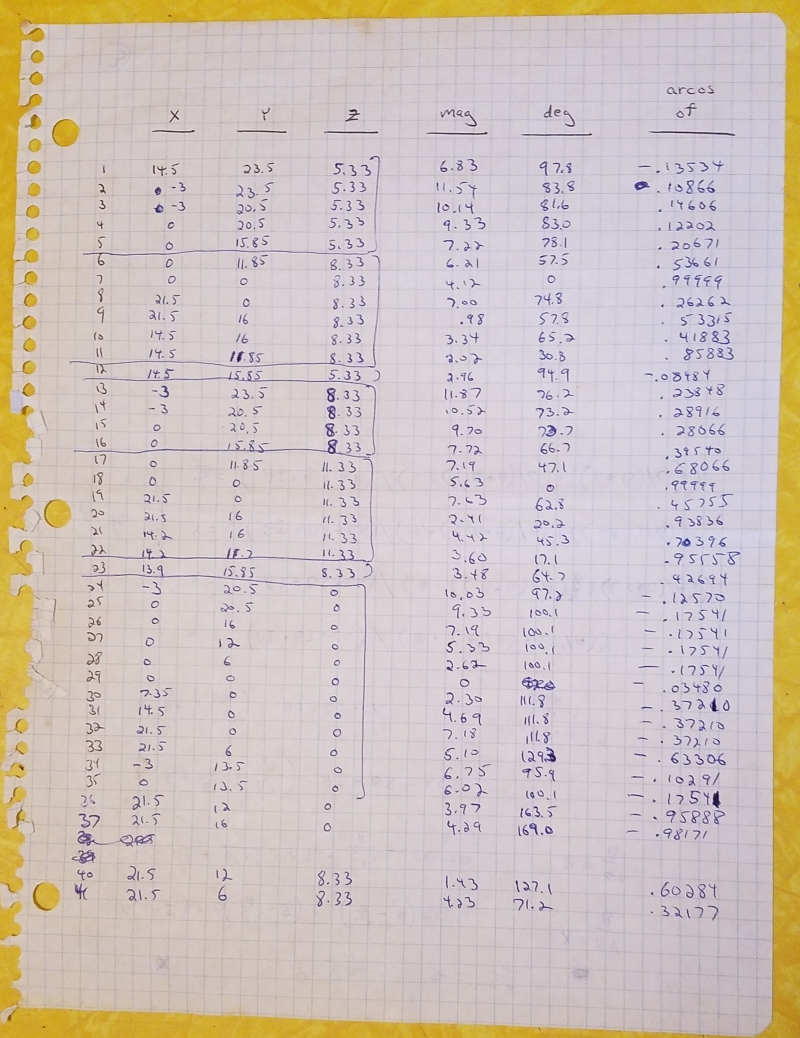 arcos
X Y Z mag deg of
1 14.5 23.5 5.33 6.83 97.8 -.13534
2 -3 23.5 5.33 11.54 83.8 .10866
3 -3 20.5 5.33 10.14 81.6 .14606
4 0 20.5 5.33 9.33 83.0 .12202
5 0 15.85 5.33 7.22 78.1 .20671
6 0 11.85 8.33 6.21 57.5 .53661
7 0 0 8.33 4.12 0 .99999
8 21.5 0 8.33 7.00 74.8 .26262
9 21.5 16 8.33 .98 57.8 .53315
10 14.5 16 8.33 3.34 65.2 .41883
11 14.5 11.85 8.33 2.02 30.8 .85883
12 14.5 15.85 5.33 2.96 94.9 -.08484
13 -3 23.5 8.33 11.87 76.2 .23848
14 -3 20.5 8.33 10.52 73.2 .28916
15 0 20.5 8.33 9.70 73.7 .28066
16 0 15.85 8.33 7.72 66.7 .39540
17 0 11.85 11.33 7.19 47.1 .68066
18 0 0 11.33 5.63 0 .99999
19 21.5 0 11.33 7.63 62.8 .45755
20 21.5 16 11.33 2.41 20.2 .93836
21 14.2 16 11.33 4.42 45.3 .70396
22 14.2 11.7 11.33 3.60 17.1 .95558
23 13.9 15.85 8.33 3.48 64.7 .42694
24 -3 20.5 0 10.03 97.2 -.12570
25 0 20.5 0 9.33 100.1 -.17541
26 0 16 0 7.19 100.1 -.17541
27 0 12 0 5.33 100.1 -.17541
28 0 6 0 2.62 100.1 -.17541
29 0 0 0 0 -.03480
30 7.35 0 0 2.30 111.8 -.37210
31 14.5 0 0 4.69 111.8 -.37210
32 21.5 0 0 7.18 111.8 -.37210
33 21.5 6 0 5.10 129.3 -.63306
34 -3 13.5 0 6.75 95.9 -.10291
35 0 13.5 0 6.02 100.1 -.17541
36 21.5 12 0 3.97 163.5 -.95888
37 21.5 16 0 4.29 169.0 -.98171
40 21.5 12 8.33 1.43 127.1 .60284
41 21.5 6 8.33 4.23 71.2 .32177